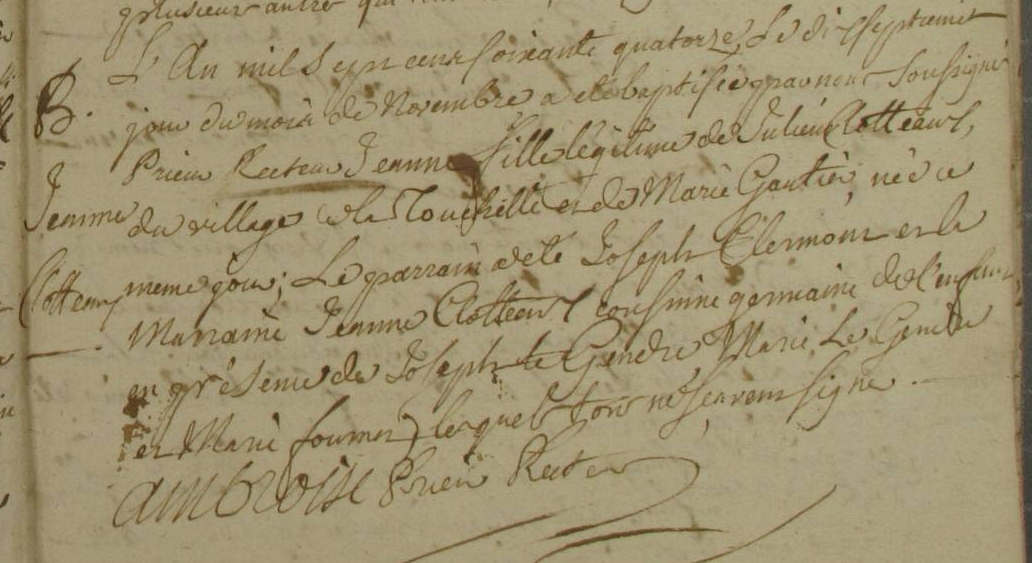 plusieurs autre qui
L'An mil sept cent soixante quatorze, Le disseptiemt
B. jour du mois de Novembre a eté baptisée par nous Soussigné
Prieur Recteur Jeanne fille légitime de Julien Clotteaux,
Jeanne du village de la Touchelle et de Marie Gautier, née ce
Clotteaux meme jour; Le parrain a eté Joseph Clermont et la
Marraine Jeanne Clotteaux cousinne germaine de l'enfant
en présence de Joseph le Gendre Marie Le Gendre
et Marie fournier lesquels tous ne scavent signe.
AMBROISE Prieur Recteur